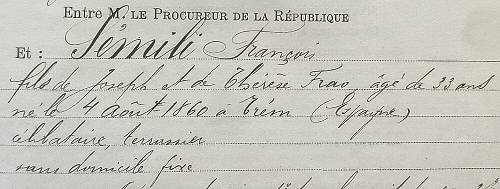 Entre M. LE PROCUREUR DE LA RÉPUBLIQUE
Et : Sémili François
fils de Joseph et de Thérèse Frao, âgé de 33 ans
né le 4 Août 1860 à Trém (Espagne)
célibataire, terrassier
sans domicile fixe